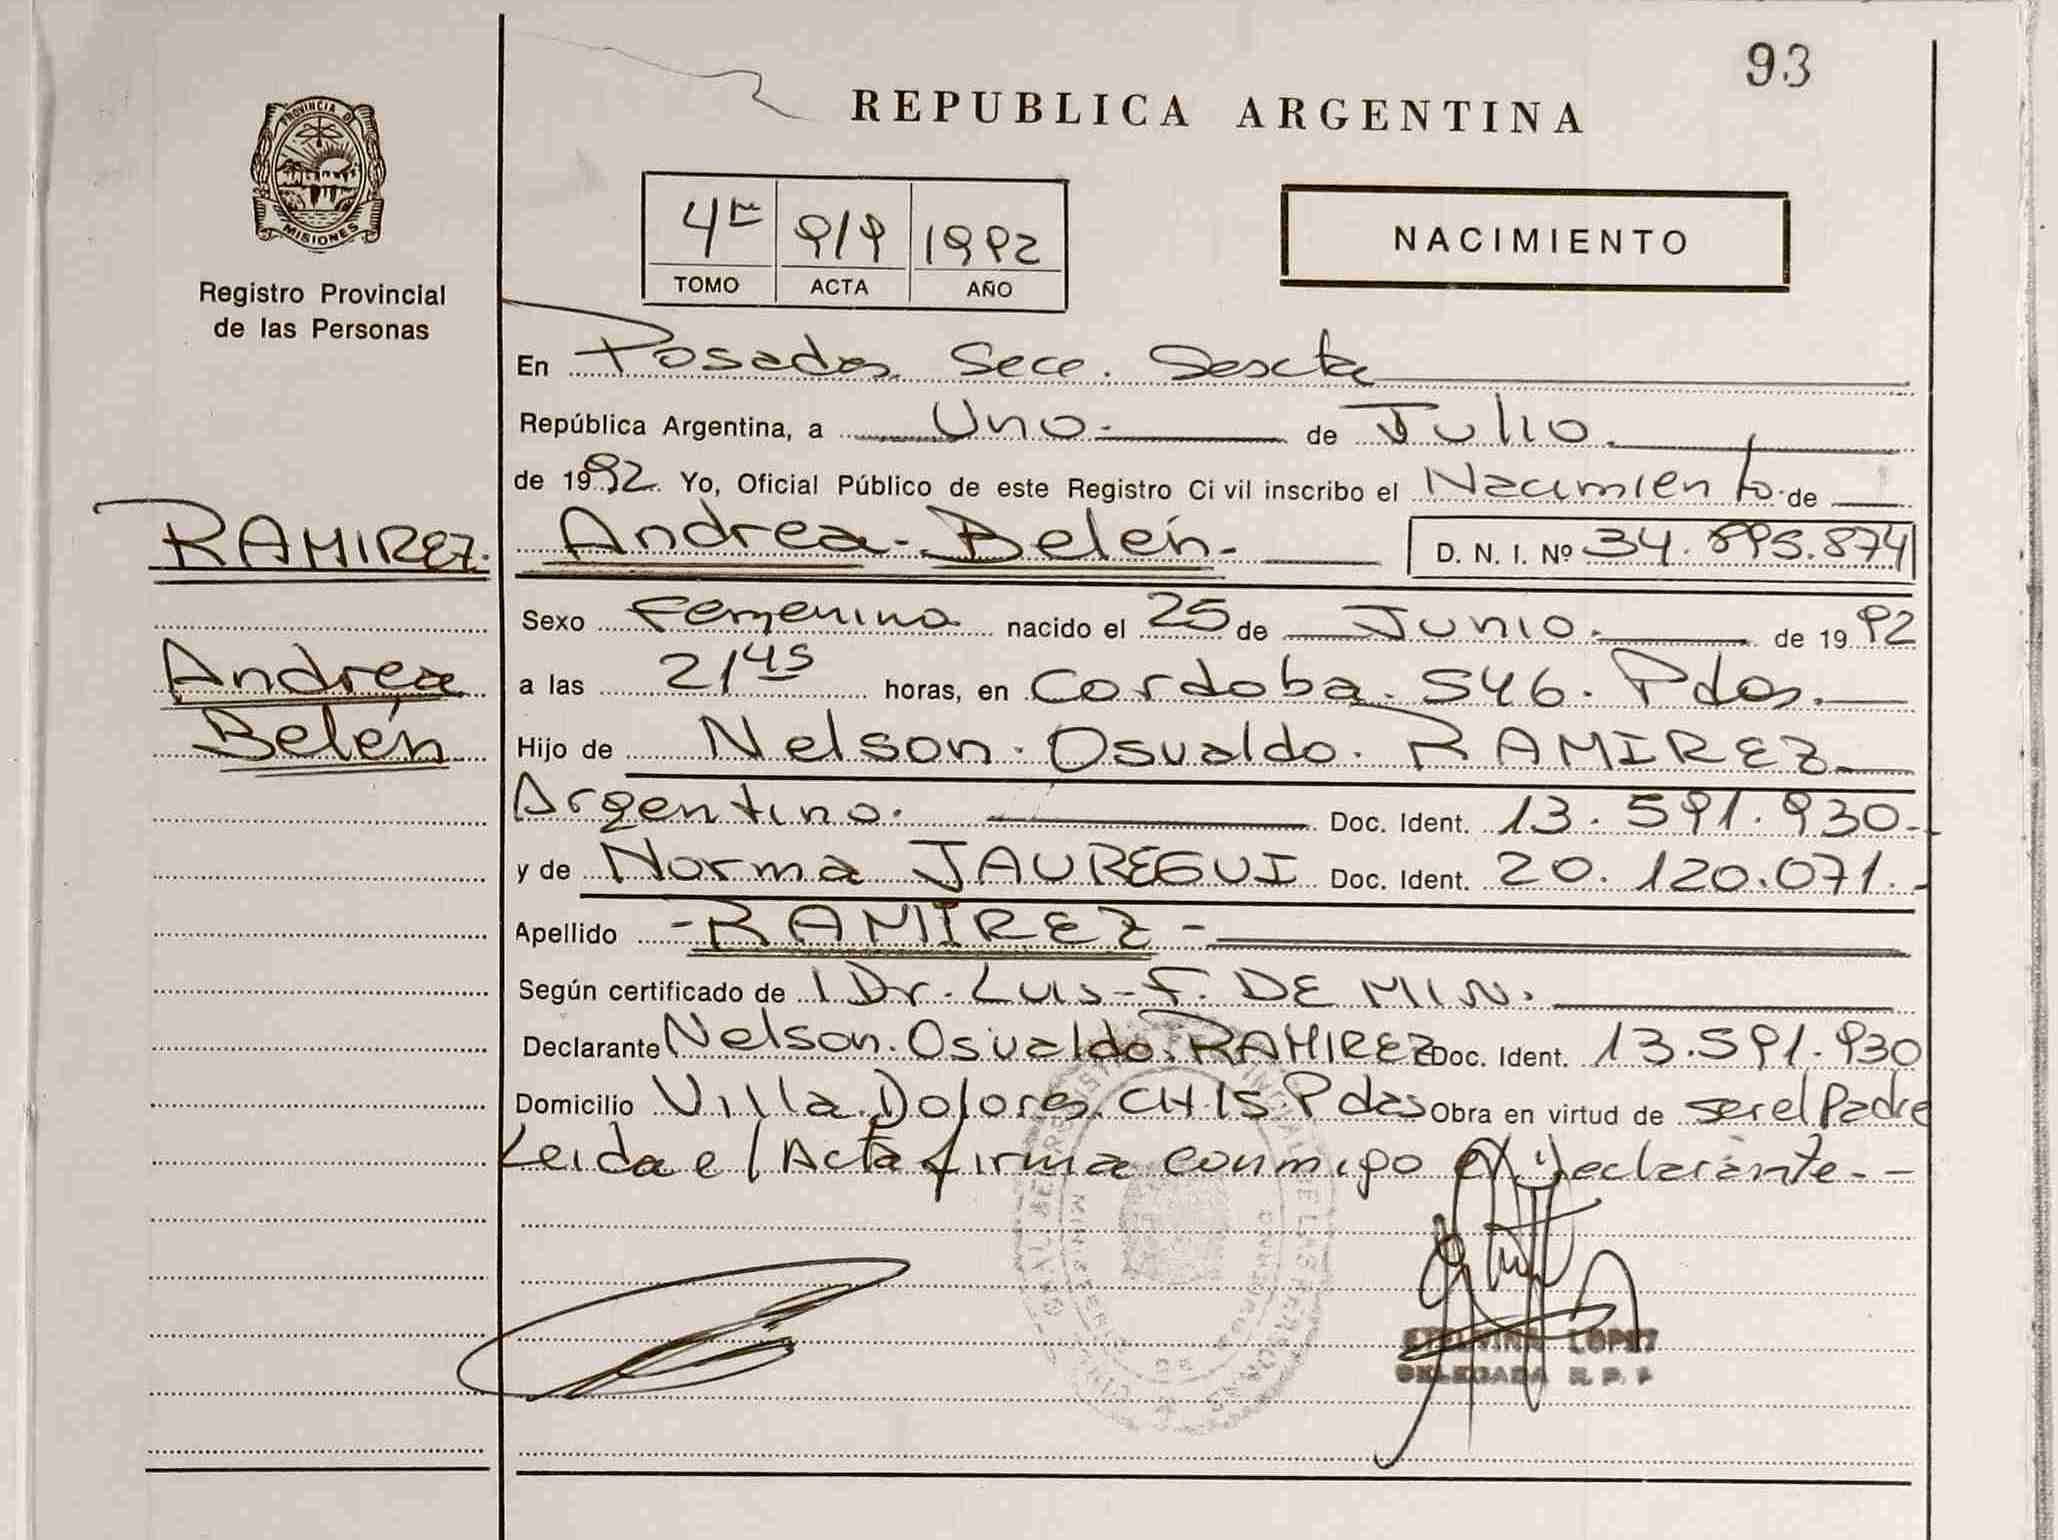 93
REPUBLICA ARGENTINA
PROVINCIA DE MISIONES
Registro Provincial
de las Personas
4to 919 1992
TOMO ACTA AÑO
NACIMIENTO
En Posadas. Secc. Sexta
República Argentina, a Uno.- de Julio.
de 1992. Yo, Oficial Público de este Registro Civil inscribo el Nacimiento. de
RAMIREZ. Andrea-Belén- D. N. I. Nº 34.895.874
Sexo Femenino nacido el 25 de Junio. de 1992
Andrea a las 21,45 horas, en Cordoba. 546. Pdas.
Belén Hijo de Nelson. Osvaldo. RAMIREZ
Argentino. Doc. Ident. 13.591.930-
y de Norma JAUREGUI Doc. Ident. 20.120.071.-
Apellido -RAMIREZ-
Según certificado de Dr. Luis-F. DE MIN.
Declarante Nelson. Osvaldo. RAMIREZ Doc. Ident. 13.591.930
Domicilio Villa.Dolores. CH 15. Pdas Obra en virtud de ser el Padre
Leida el Acta firma conmigo el declarante.-
LOPEZ
DELEGADA R. P. P